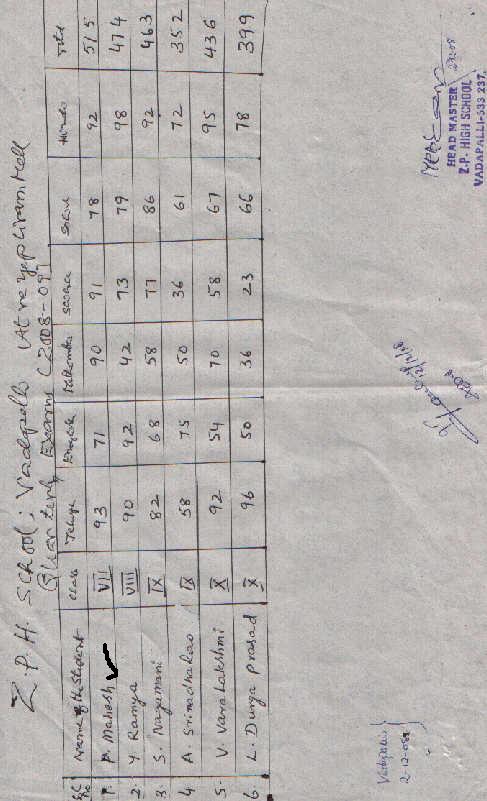 Z.P.H. School; Vadapalli (Atreyapuram Mdl
Quarterly Exams (2008-09)
Sl No Name of the Student Class Telugu English Mathematics Science Social Hindi Total
1. P. Mahesh ✓ VII 93 71 90 91 78 92 515
2. Y Ramya VIII 90 92 42 73 79 98 474
3 S. Nagamani IX 82 68 58 77 86 92 463
4 A. Srinadha Rao IX 58 75 50 36 61 72 352
5. V. Varalakshmi X 92 54 70 58 67 95 436
6 L. Durga Prasad X 96 50 36 23 66 78 399
Vadapalli
2-12-08
2/12/08
HEAD MASTER
Z.P. HIGH SCHOOL
VADAPALLI-533 237.